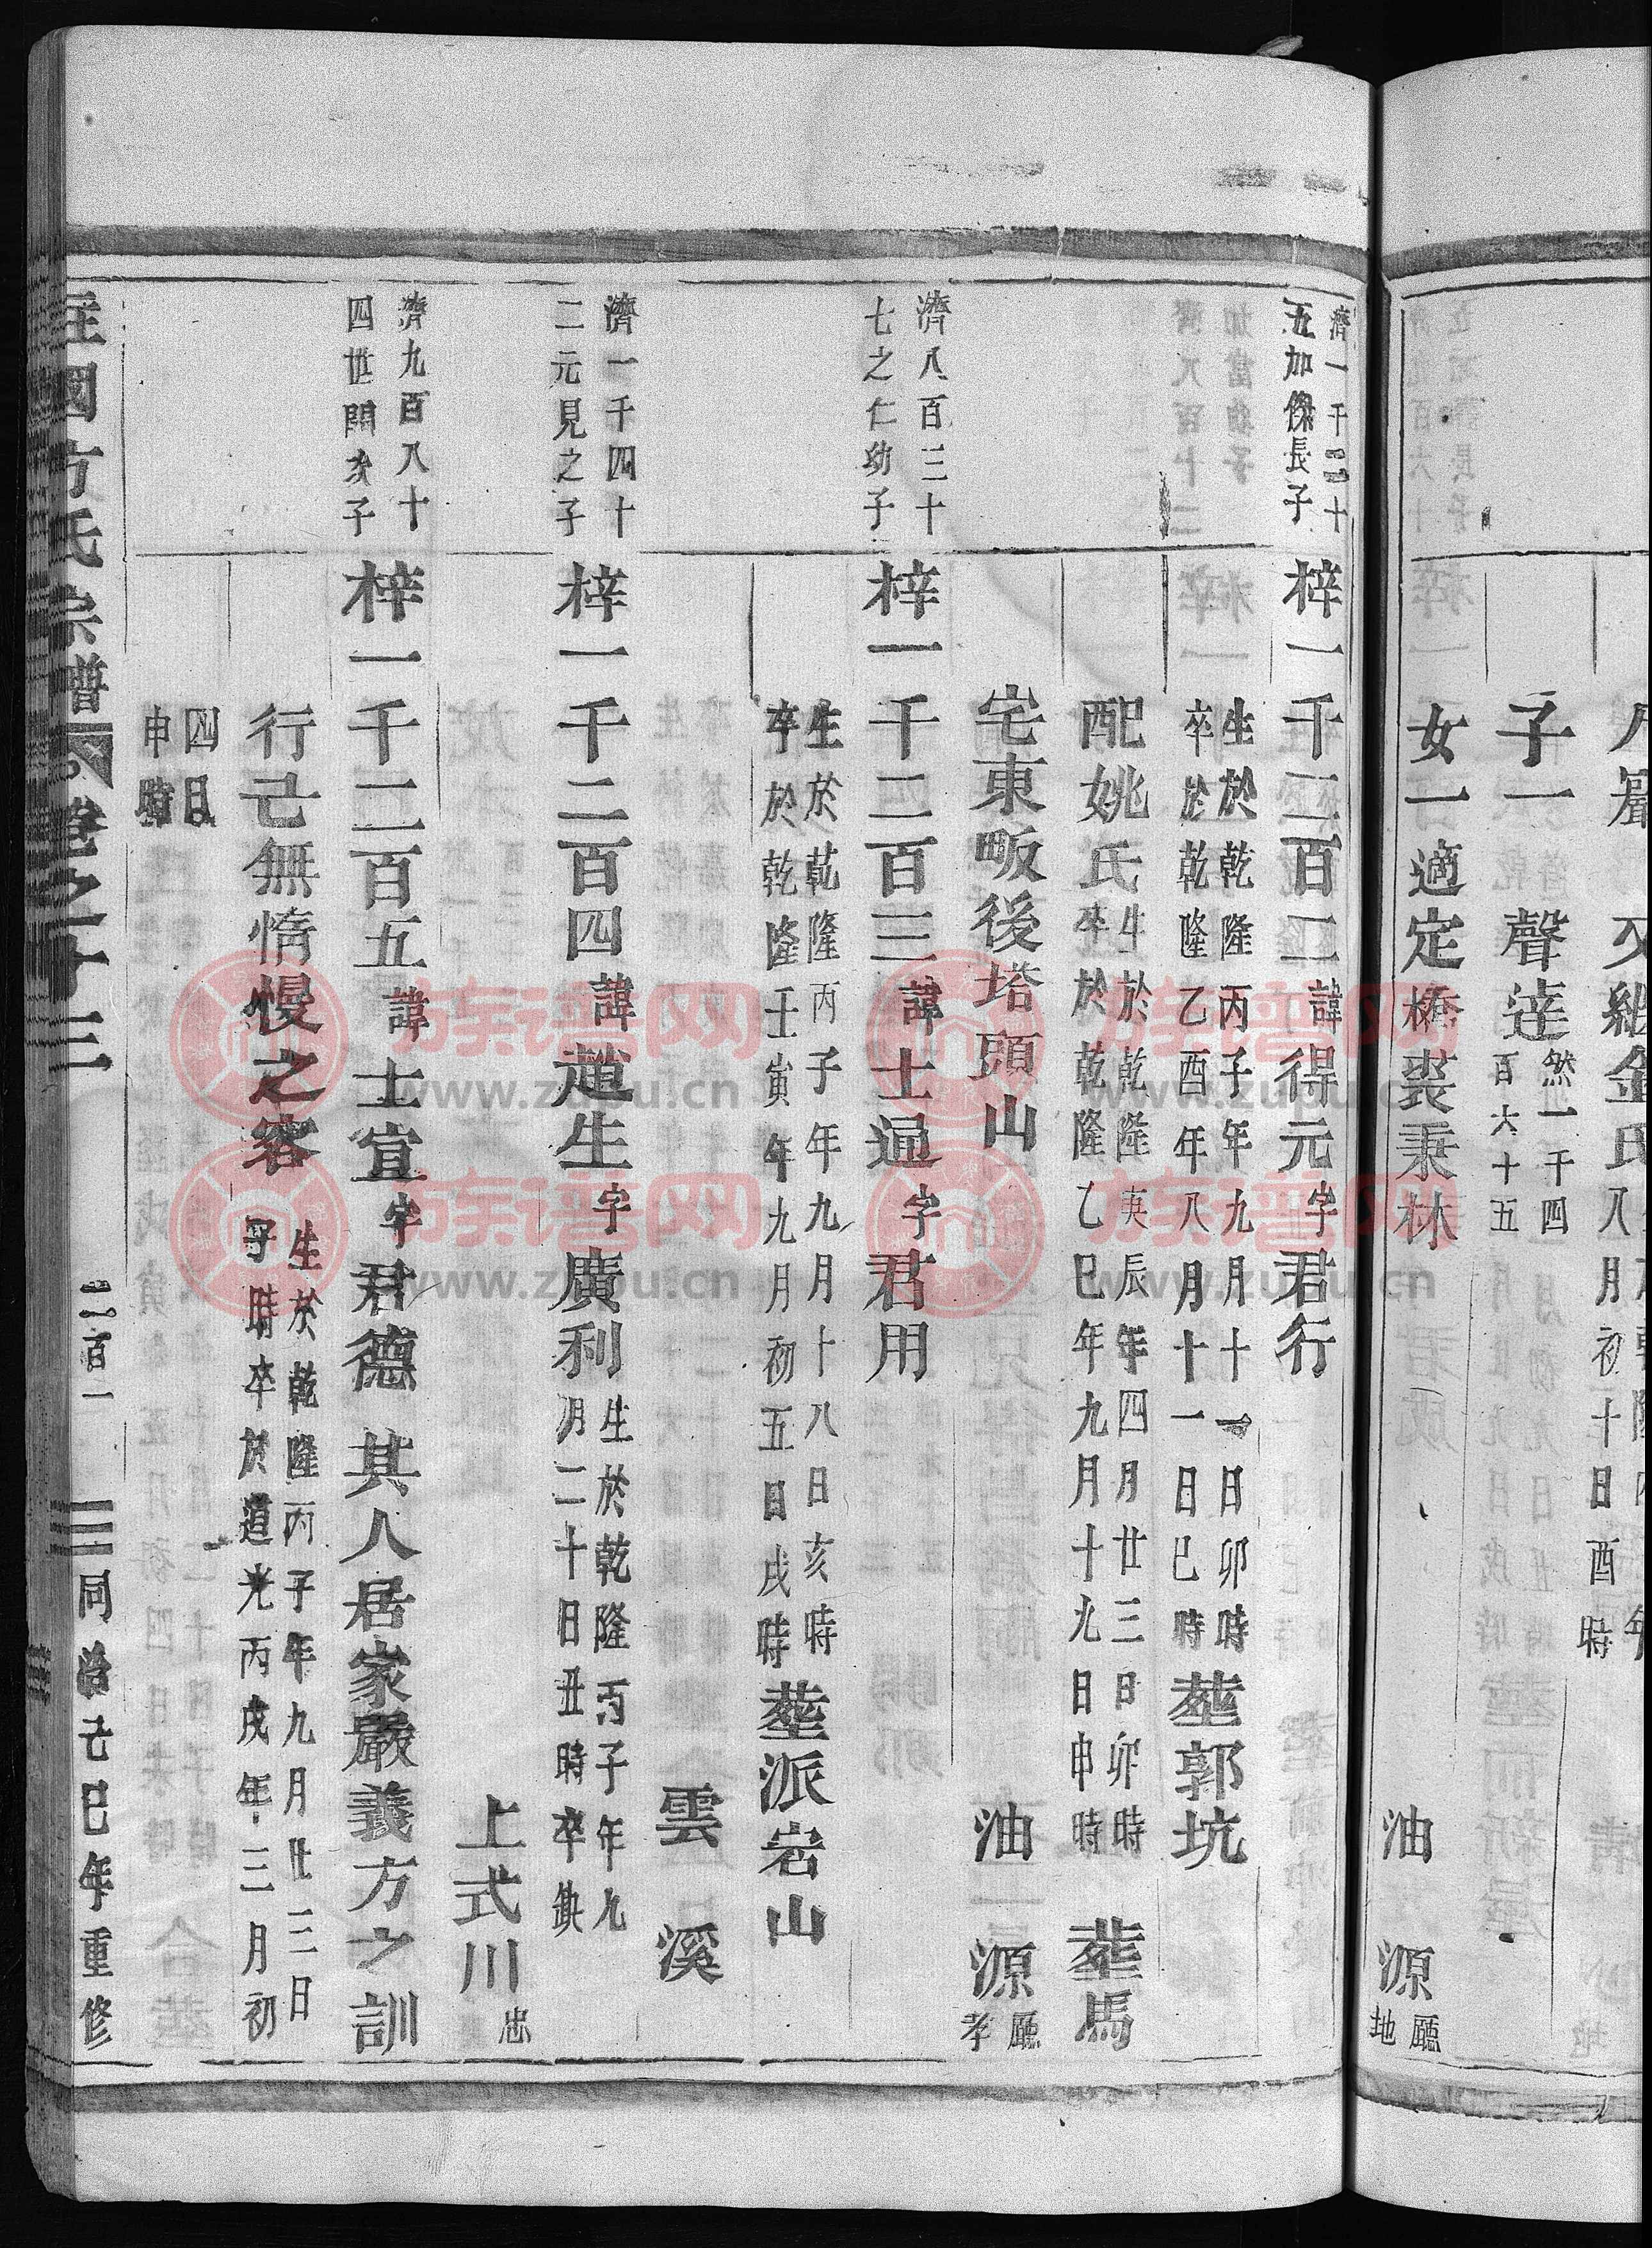 子一 聲達 然一千四百六十五
女一適定橋裘秉林
油源 廳地
濟一千二十五加傑長子
梓一千二百二諱得元字君行
生於乾隆丙子年九月十一日卯時
卒於乾隆乙酉年八月十一日巳時
塟郭坑
配姚氏
生於乾隆庚辰年四月廿三日卯時
卒於乾隆乙巳年九月十九日申時
塟馬
宅東畈後塔頭山
油源 廳孝
濟八百三十七之仁幼子
梓一千二百三諱士通字君用
生於乾隆丙子年九月十八日亥時
卒於乾隆壬寅年九月初五日戌時
塟派岩山
雲溪
濟一千四十二元見之子
梓一千二百四諱趙生字廣利
生於乾隆丙子年九月二十日丑時卒缺
上式川 出
濟九百八十四世開次子
梓一千二百五諱士宜字君德 其人居家嚴義方之訓
行己無惰慢之容
生於乾隆丙子年九月廿三日子時卒於道光丙戌年三月初四日申時
國方氏宗譜 卷之十三 二百一 同治己巳年重修
族谱网
www.zupu.cn
族谱网
www.zupu.cn
族谱网
www.zupu.cn
族谱网
www.zupu.cn